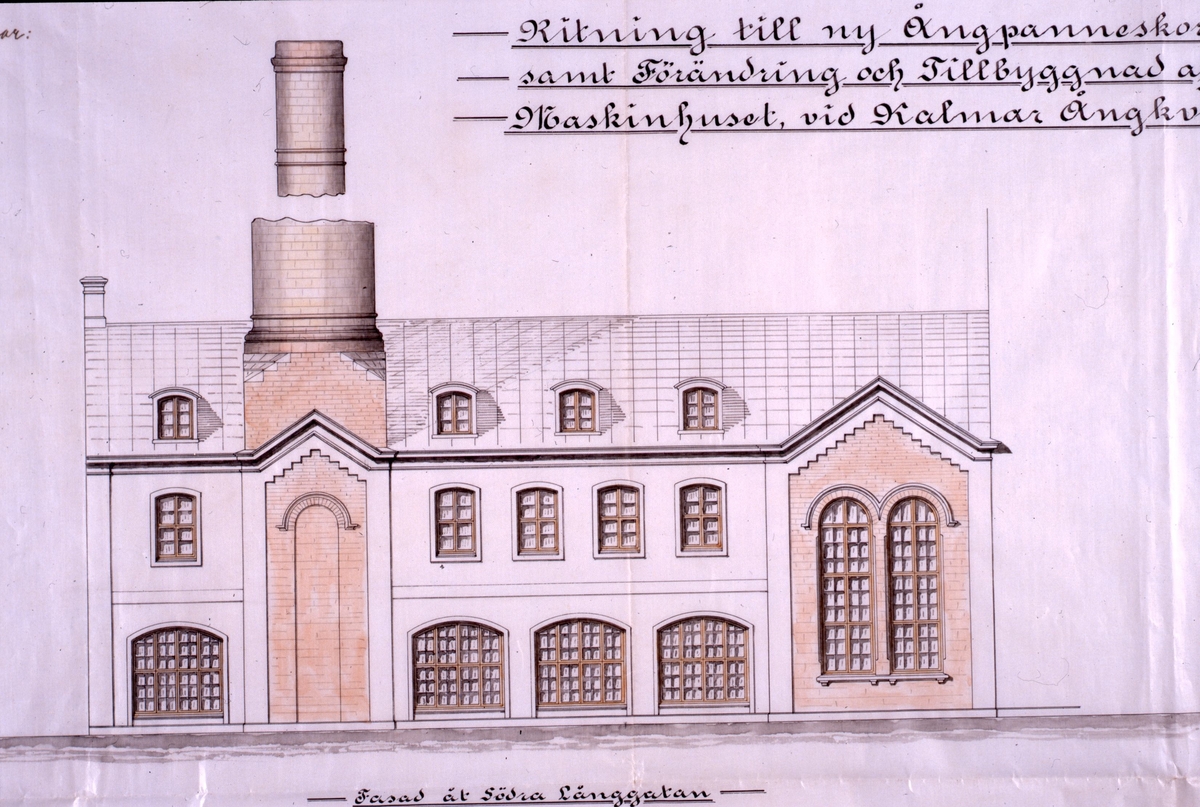 ar:
Ritning till ny Ångpanneskor
samt Förändring och Tillbyggnad af
Maskinhuset, vid Kalmar Ångkv
Fasad åt Södra Långgatan